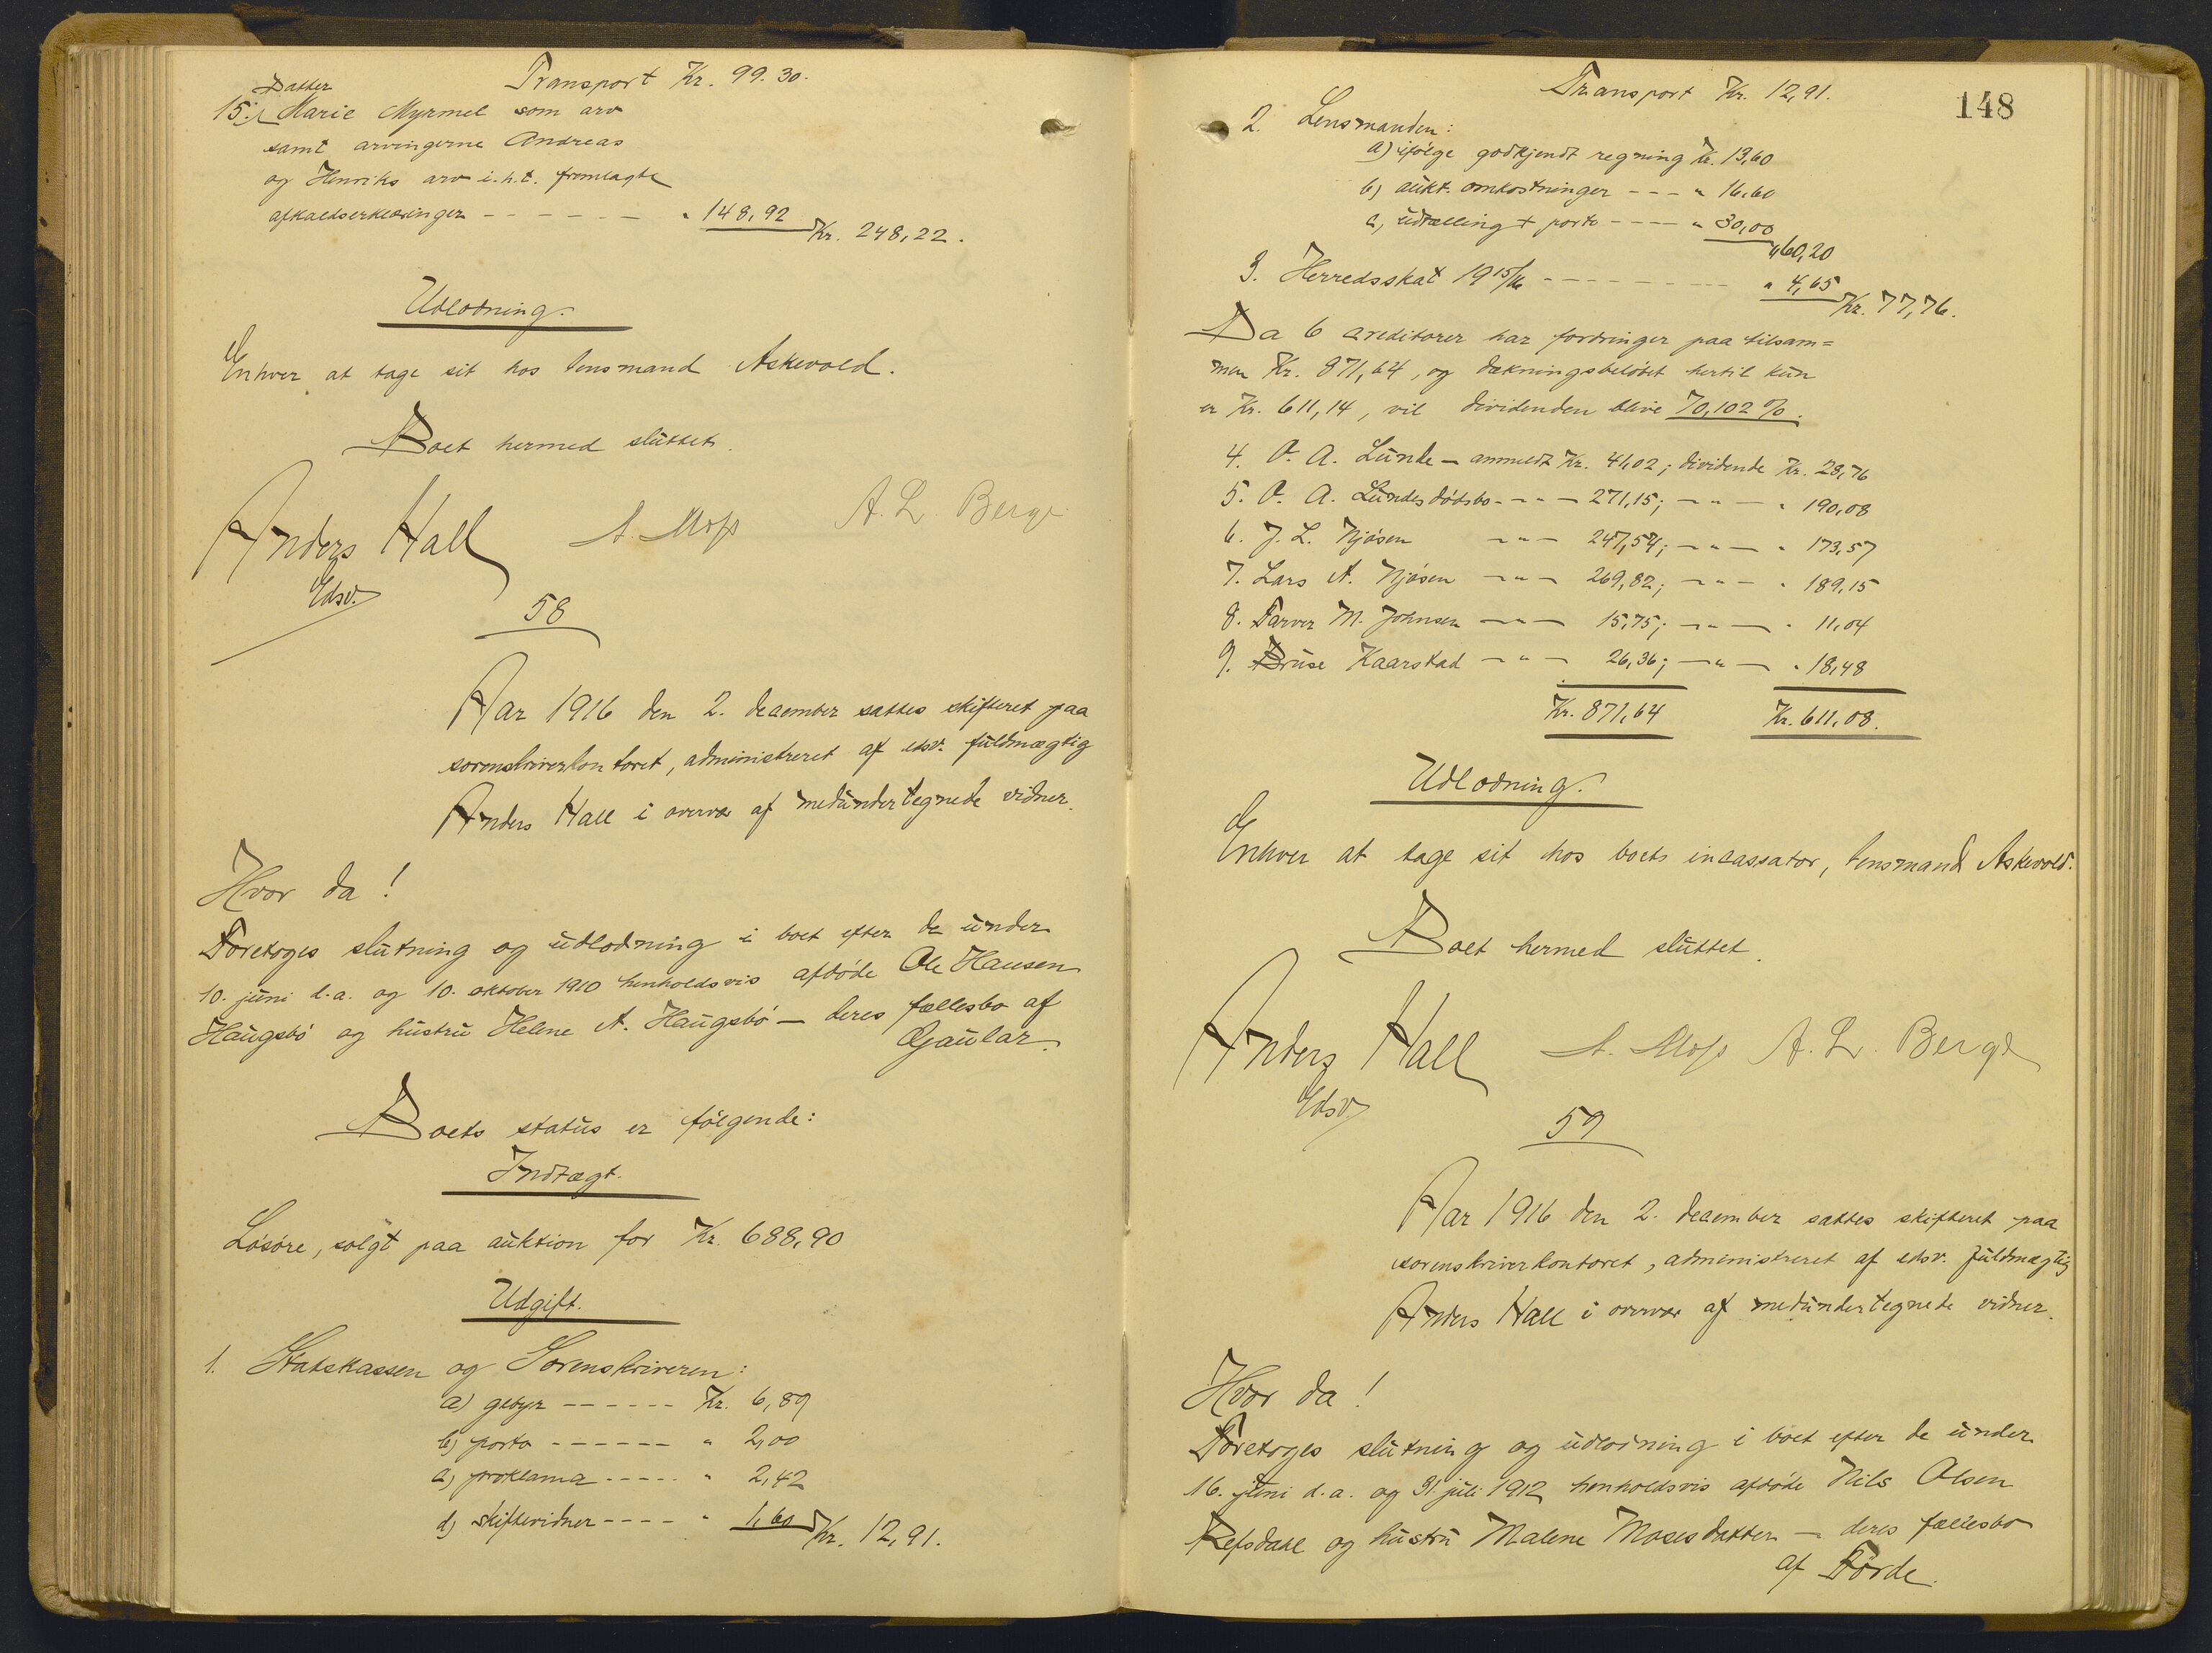 Transport Kr. 99.30.
Datter
15. Marie Myrmel som arv
samt arvingerne Andreas
og Henriks arv i.h.t. fremlagte
afkaldserklæringer - - - - - - " 148,92
Kr. 248,22.
Udlodning.
Enhver at tage sit hos lensmand Askevold.
Boet hermed sluttet.
Anders Hall A. Moss A. L. Berge
Edsv.
58
Aar 1916 den 2. december sattes skifteret paa
sorenskriverkontoret, administreret af edsv. fuldmægtig
Anders Hall i overvær af medundertegnede vidner.
Hvor da!
Foretoges slutning og udlodning i boet efter de under
10. juni d.a. og 10. oktober 1910 henholdsvis afdøde Ole Hansen
Haugsbø og hustru Helene A. Haugsbø — deres fællesbo af
Gaular.
Boets status er følgende:
Indtægt.
Løsøre, solgt paa auktion for Kr. 688,90
Udgift.
1. Statskassen og Sorenskriveren:
a) gebyr - - - - - - Kr. 6,89
b) porto - - - - - - " 2,00
c) proklama - - - - - " 2,42
d) skiftevidner - - - - " 1,60
Kr. 12,91.
148
Transport Kr. 12,91.
2. Lensmanden:
a) ifølge godkjendt regning Kr. 13,60
b) aukt. omkostninger - - - " 16,60
c) udtælling + porto - - - - " 30,00
" 60,20
3. Herredsskat 1915/16 - - - - - - - - - " 4,65
Kr. 77,76.
Da 6 creditorer har fordringer paa tilsam=
men Kr. 871,64, og dækningsbeløbet hertil kun
er Kr. 611,14, vil dividenden blive 70,102 %.
4. O. A. Lunde — anmeldt Kr. 41,02; dividende Kr. 28,76
5. O. A. Lundes dødsbo - - " - 271,15; - " - " 190,08
6. J. L. Njøsen - " - 247,54; - " - " 173,57
7. Lars A. Njøsen - " - 269,82; - " - " 189,15
8. Farver M. Johnsen - " - 15,75; - " - " 11,04
9. Druse Kaarstad - " - 26,36; - " - " 18,48
Kr. 871,64 Kr. 611,08.
Udlodning.
Enhver at tage sit hos boets incassator, lensmand Askevold.
Boet hermed sluttet.
Anders Hall A. Moss A. L. Berge
Edsv.
59
Aar 1916 den 2. december sattes skifteret paa
sorenskriverkontoret, administreret af edsv. fuldmægtig
Anders Hall i overvær af medundertegnede vidner.
Hvor da!
Foretoges slutning og udlodning i boet efter de under
16. juni d.a. og 31. juli 1912 henholdsvis afdøde Nils Olsen
Refsdahl og hustru Malene Mosesdatter — deres fællesbo
af Førde.